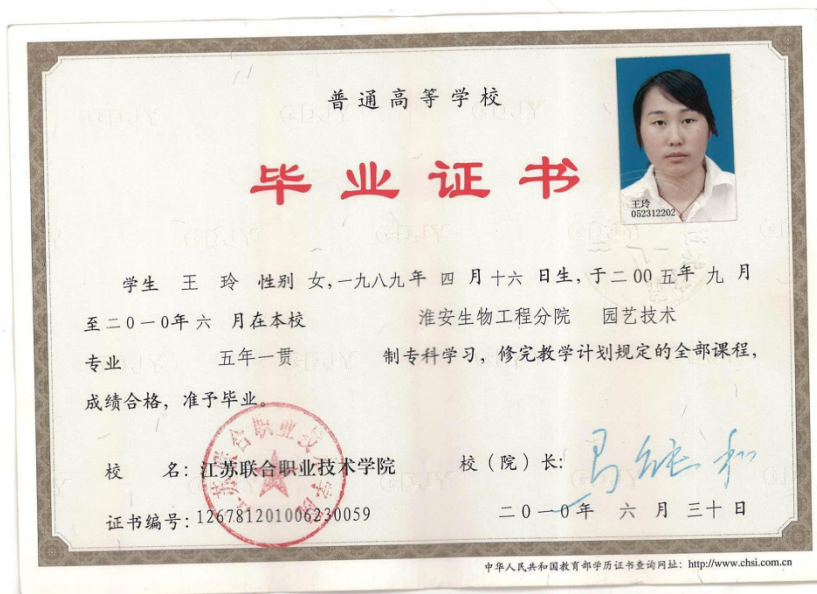 普通高等学校
毕业证书
王玲
052312202
学生 王 玲 性别 女,一九八九年 四 月十六 日生,于二00五年 九 月
至二0一0年 六 月在本校 淮安生物工程分院 园艺技术
专业 五年一贯 制专科学习,修完教学计划规定的全部课程,
成绩合格,准予毕业。
校 名:江苏联合职业技术学院
校(院)长:
证书编号:126781201006230059
二0一0年 六 月 三十日
中华人民共和国教育部学历证书查询网址:http://www.chsi.com.cn